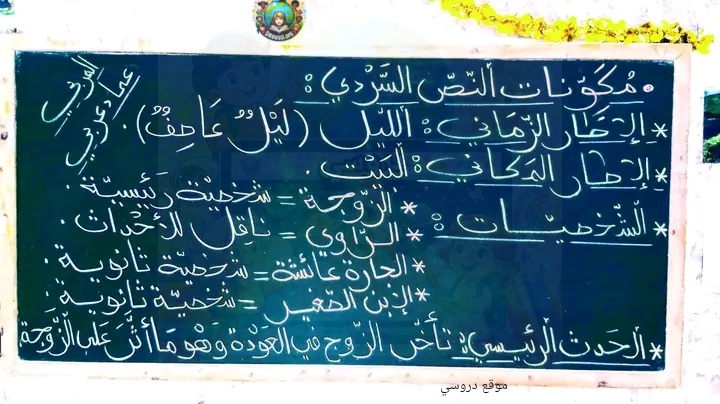 • مُكَوِّنات النّصّ السَّرْدي :
* الإِطَار الزّمَاني : اللَّيْل ( لَيْلٌ عَاصِفٌ ) .
* الإِطار المَكاني : البَيْت .
* الشّخصيّات :
* الزّوجة = شخصيّة رَئيسيّة .
* الرّاوي = ناقِل للأحْداث .
* الجارة عائشة = شخصيّة ثانوية .
* الإبن الصّغير = شخصيّة ثانوية .
* الحَدث الرّئيسيّ : تأخّر الزّوج في العَوْدة وَهْوَ مَا أثّرَ عَلى الزّوجَة
المربي
عماد عربي
موقع دروسي